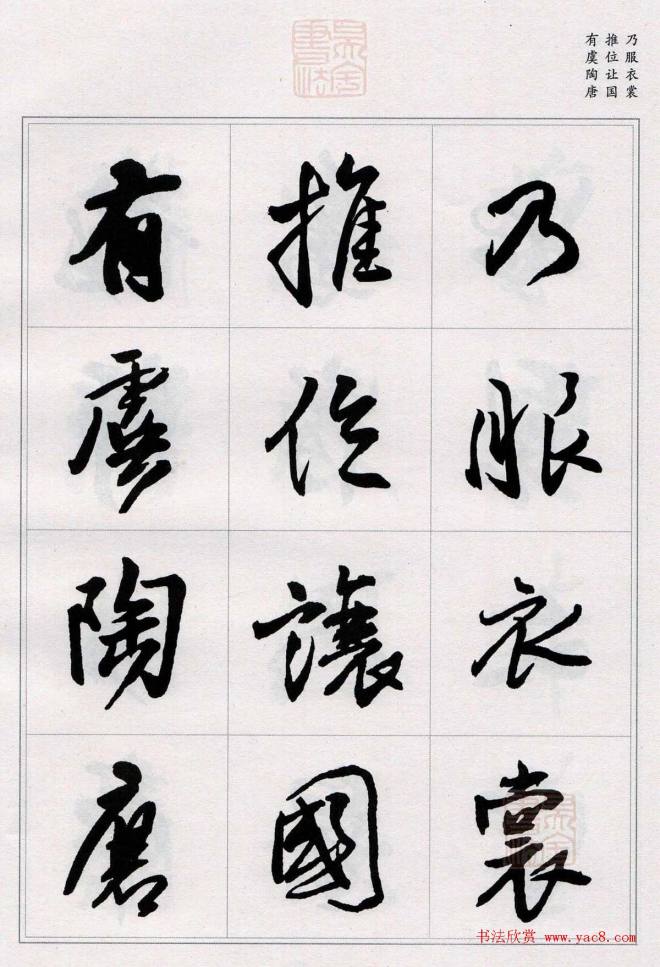 乃服衣裳
推位让国
有虞陶唐
乃服衣裳
推位讓國
有虞陶唐
书法欣赏 www.yac8.com